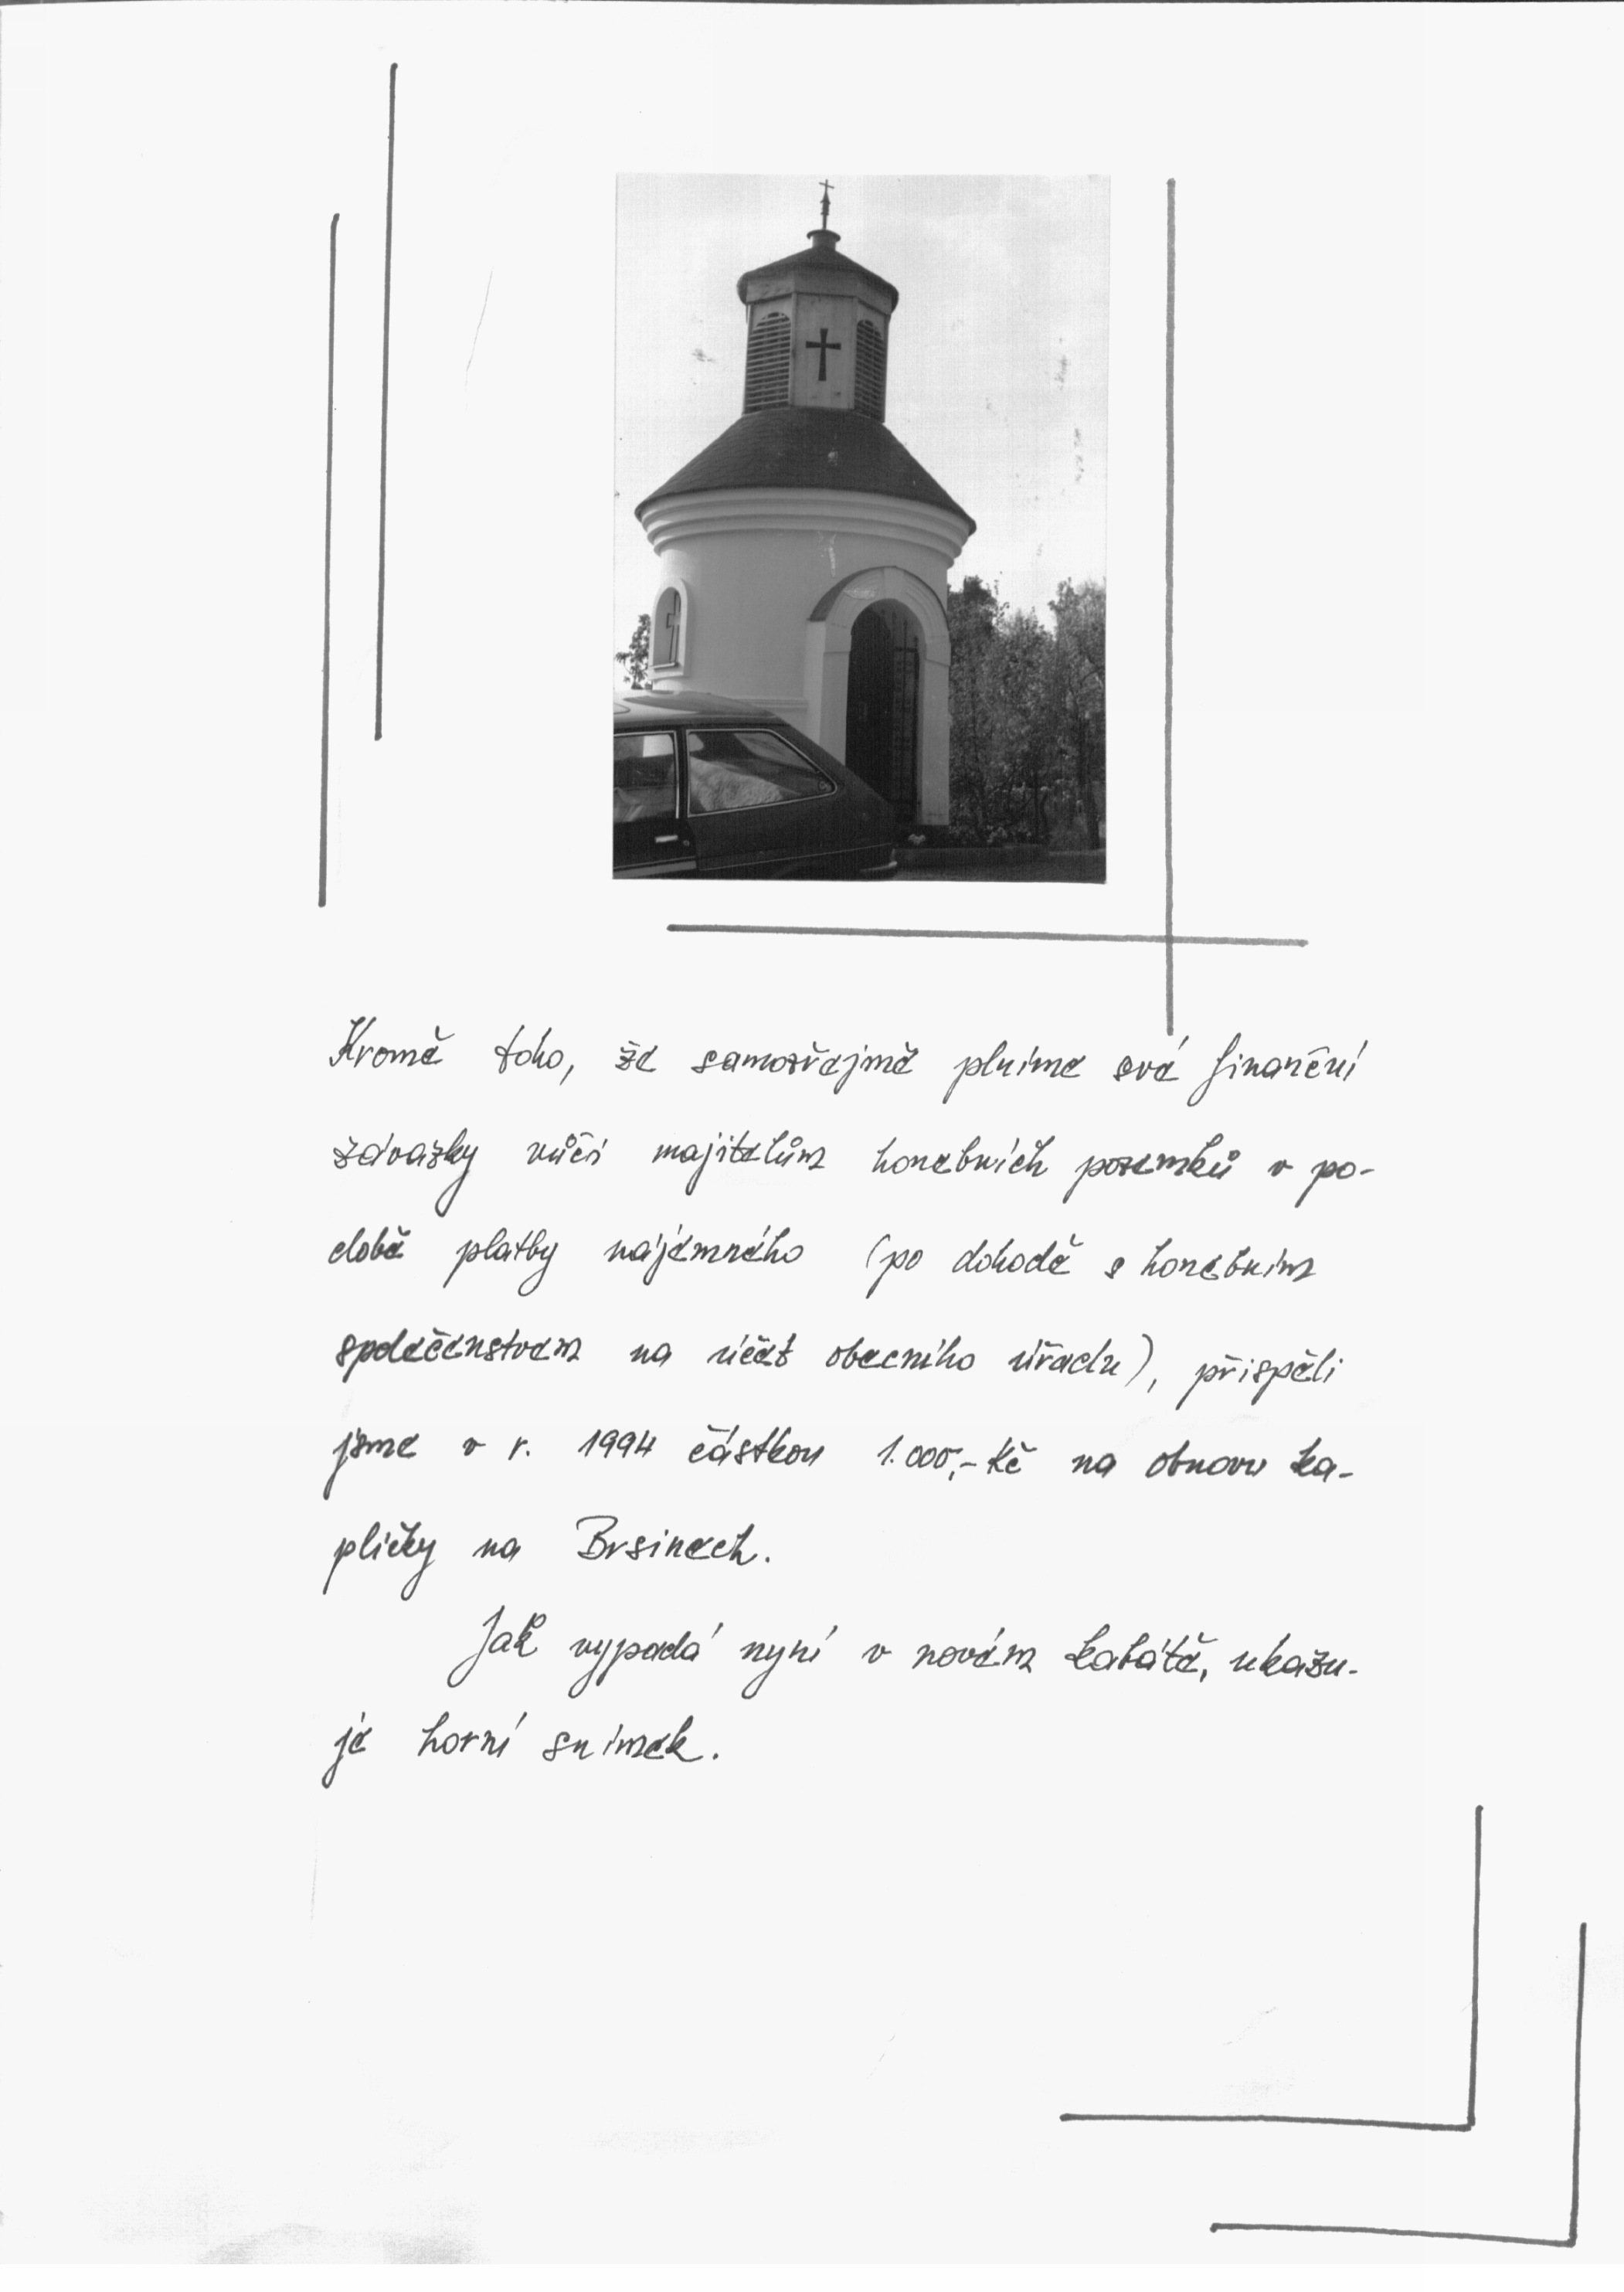 Kromě toho, že samozřejmě plníme své finanční
závazky vůči majitelům honebních pozemků v po-
době platby nájemného (po dohodě s honebním
společenstvem na účet obecního úřadu), přispěli
jsme v r. 1994 částkou 1.000,- Kč na obnovu ka-
pličky na Brsinech.
Jak vypadá nyní v novém kabátě, ukazu-
je horní snímek.